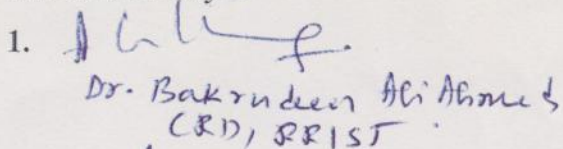 1.
Dr. Bakrudeen Ali Ahmed
(RD), PRIST